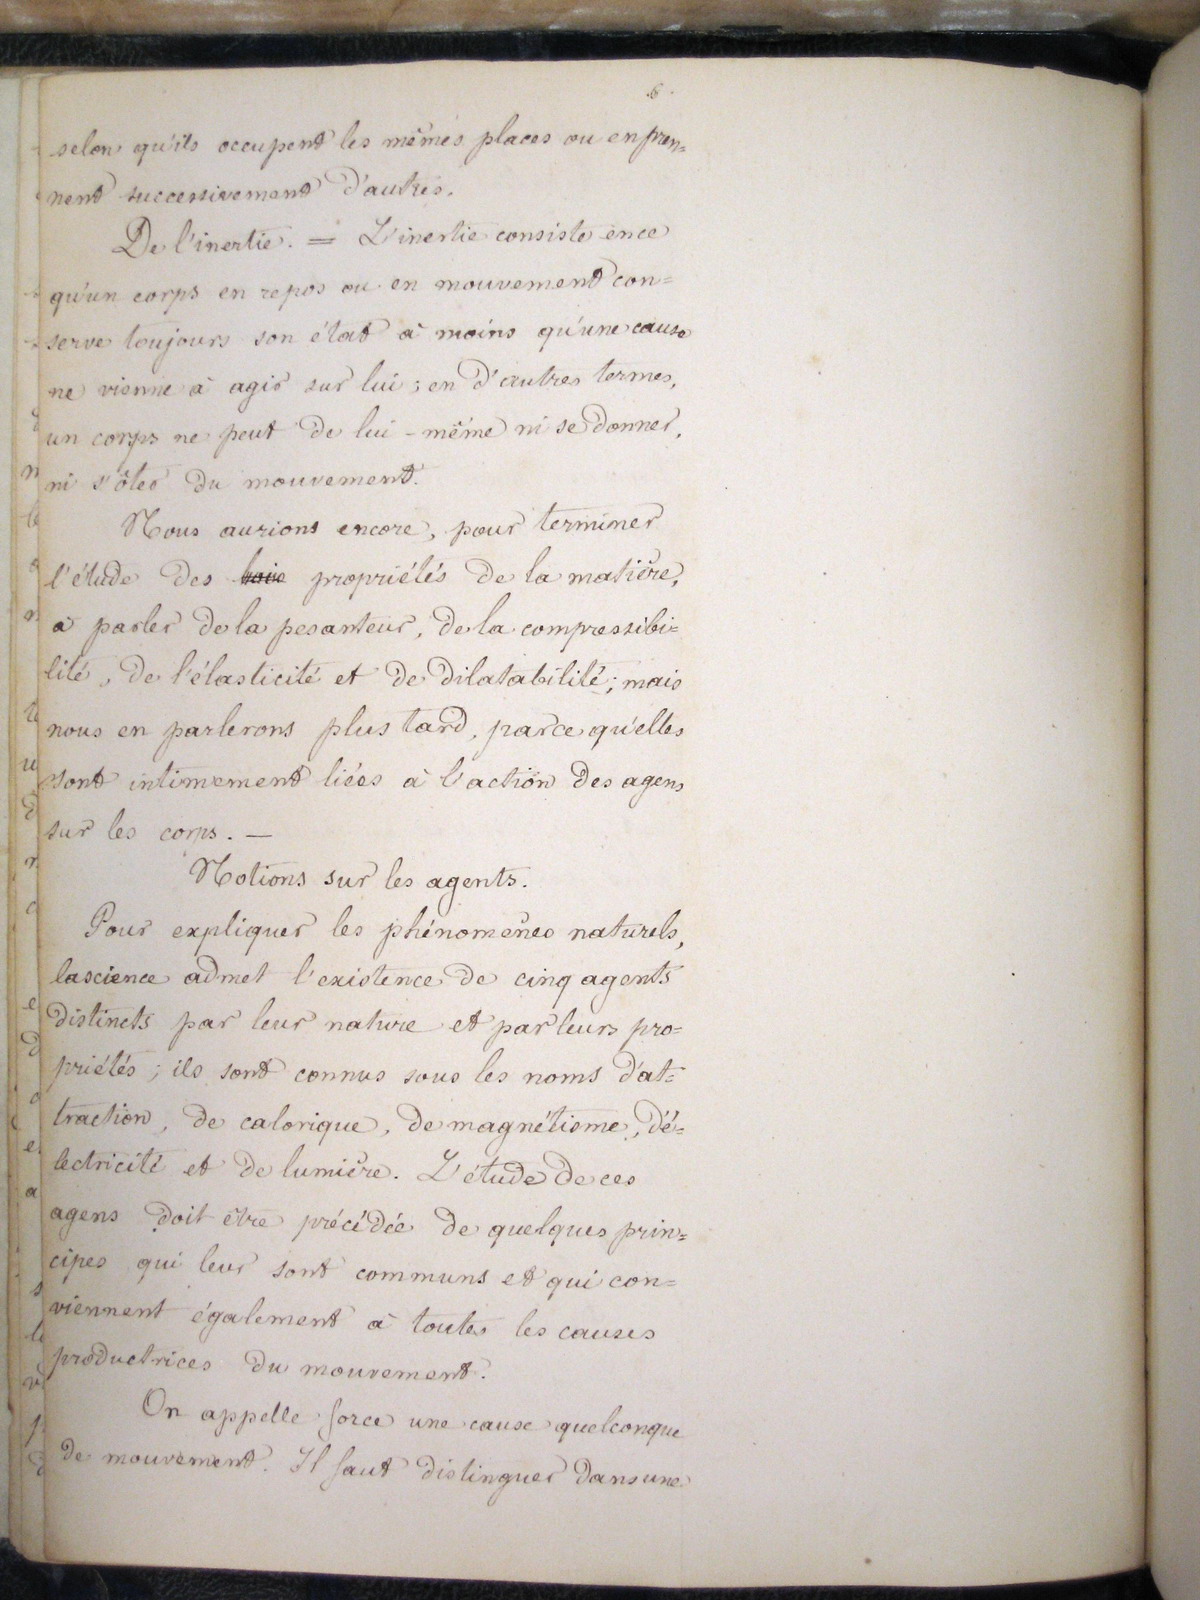 8.
selon qu'ils occupent les mêmes places ou en pren=
nent successivement d'autres.
De l'inertie. = L'inertie consiste en ce
qu'un corps en repos ou en mouvement con=
serve toujours son état à moins qu'une cause
ne vienne à agir sur lui ; en d'autres termes,
un corps ne peut de lui-même ni se donner,
ni s'ôter du mouvement.
Nous aurions encore, pour terminer
l'étude des propriétés de la matière,
a parler de la pesanteur, de la compressibi=
lité, de l'élasticité et de dilatabilité ; mais
nous en parlerons plus tard, parce qu'elles
sont intimement liées à l'action des agens
sur les corps. —
Notions sur les agents.
Pour expliquer les phénomènes naturels,
la science admet l'existence de cinq agents
distincts par leur nature et par leurs pro=
priétés ; ils sont connus sous les noms d'at=
traction, de calorique, de magnétisme, d'é=
lectricité et de lumière. L'étude de ces
agens doit être précédée de quelques prin=
cipes qui leur sont communs et qui con=
viennent également à toutes les causes
productrices du mouvement.
On appelle force une cause quelconque
de mouvement. Il faut distinguer dans une